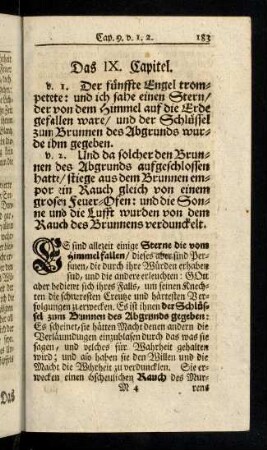 Cap. 9. v. 1. 2. 183
Das IX. Capitel.
v. 1. Der fünffte Engel trom-
petete: und ich sahe einen Stern/
der von dem Himmel auf die Erde
gefallen ware/ und der Schlüssel
zum Brunnen des Abgrunds wur-
de ihm gegeben.
v. 2. Und da solcher den Brun-
nen des Abgrunds aufgeschlossen
hatt/ stiege aus dem Brunnen em-
por ein Rauch gleich von einem
grosen Feuer-Ofen: und die Son-
ne und die Lufft wurden von dem
Rauch des Brunnens verdunckelt.
ES sind allezeit einige Sterne die vom
Himmel fallen/ dieses aber sind Per-
sonen, die durch ihre Würden erhaben
sind, und die andere erleuchten: GOtt
aber bedient sich ihres Falls, um seinen Knech-
ten die schwersten Creutze und härtesten Ver-
folgungen zu erwecken. Es ist ihnen der Schlüs-
sel zum Brunnen des Abgrunds gegeben:
Es scheinet, sie hätten Macht denen andern die
Verläumdungen einzublasen durch das was sie
sagen, und welches für Wahrheit gehalten
wird; und also haben sie den Willen und die
Macht die Wahrheit zu verdunckeln. Sie er-
wecken einen scheußlichen Rauch des Mur-
M 4 rens
Das